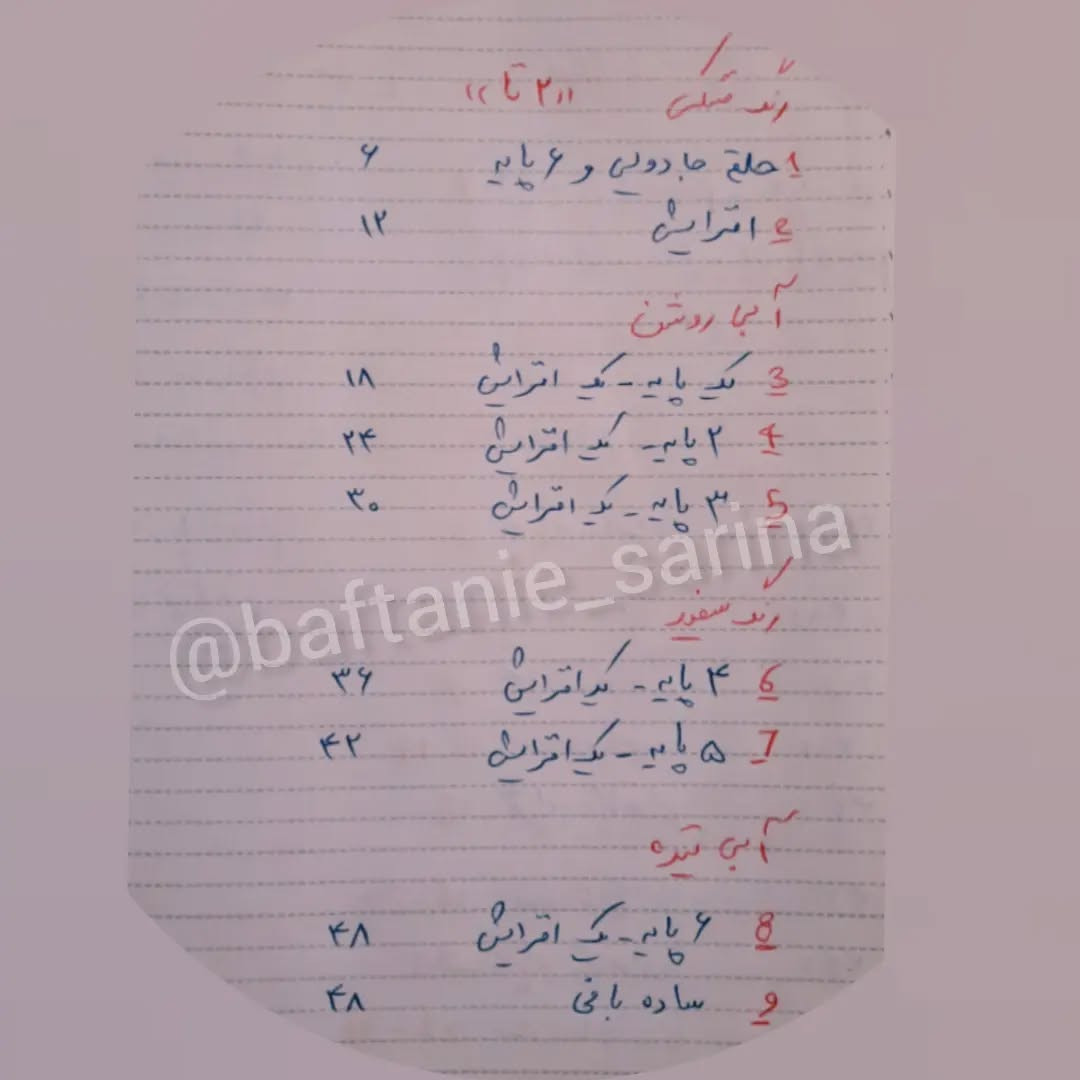 رنگ مشکی «۲ تا»
1 حلقه جادویی و ۶ پایه ۶
2 افزایش ۱۲
آبی روشن
3 یک پایه - یک افزایش ۱۸
4 ۲ پایه - یک افزایش ۲۴
5 ۳ پایه - یک افزایش ۳۰
@baftanie_sarina
رنگ سفید
6 ۴ پایه - یک افزایش ۳۶
7 ۵ پایه - یک افزایش ۴۲
آبی تیره
8 ۶ پایه - یک افزایش ۴۸
9 ساده بافی ۴۸